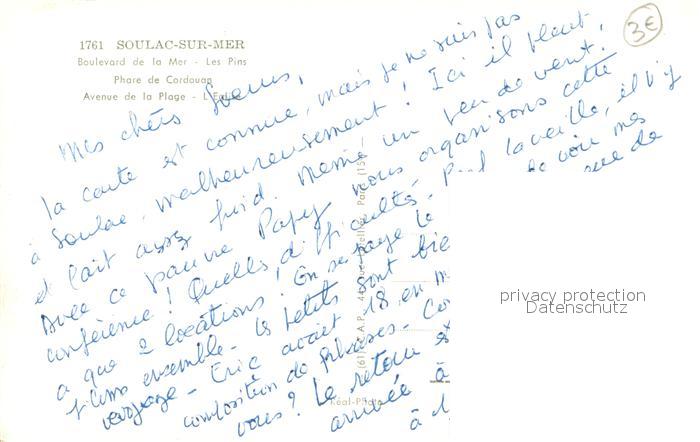 3€
1761 SOULAC-SUR-MER
Boulevard de la Mer - Les Pins
Phare de Cordouan
Avenue de la Plage - L'Eglise
Mes chers
la carte est connue, mais je ne suis pas
à Soulac, malheureusement! Ici il pleut,
et fait assez froid. Même un peu de vent.
Avec ce pauvre Papy nous organisons cette
conférence! Quelles difficultés. la veille, il n'y
a que 2 locations! On se paye le de voir mes
films ensemble. Les petits sont bie que de
voyage. Eric avait 18 en m
composition de phrases. Co
vous? Le retour es
arrivée à
à l
Réal-Photo
privacy protection
Datenschutz